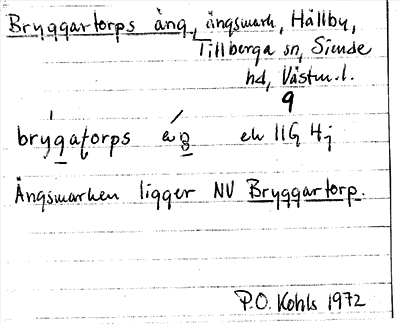 Bryggartorps äng, ängsmark, Hållby,
Tillberga sn, Siende
hd, Västm. l.
9
brygatorps äŋ ek 11G 4j
Ängsmarken ligger NV Bryggartorp.
P.O. Kohls 1972